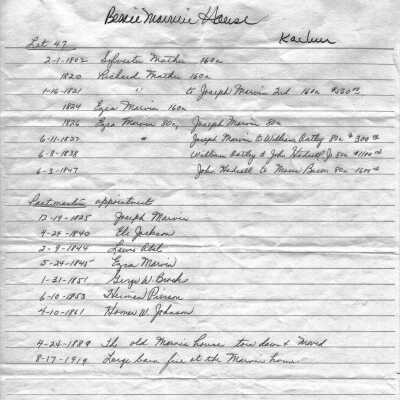 Bessie Marvin House
Lot 47
2-1-1802 Sylvester Mather 160a
1820 Richard Mather 160a
1-16-1821 " to Joseph Marvin 2nd 160a
1824 Ezra Marvin 160a
1826 Ezra Marvin 80a, Joseph Marvin 80a
6-11-1837 " Joseph Marvin to William 80a $300
6-8-1838 William to John Jr 80a $1100
6-3-1847 John to Bacon 80a
Postmaster appointments
12-19-1825 Joseph Marvin
4-24-1840 Eli Jackson
2-9-1844 Lewis Abel
5-24-1845 Ezra Marvin
1-31-1851 George W.
6-10-1853 Herman Pierson
4-10-1861 Homer W. Johnson
4-24-1889 The old Marvin house tore down & moved
8-17-1919 Large barn fire at the Marvin home